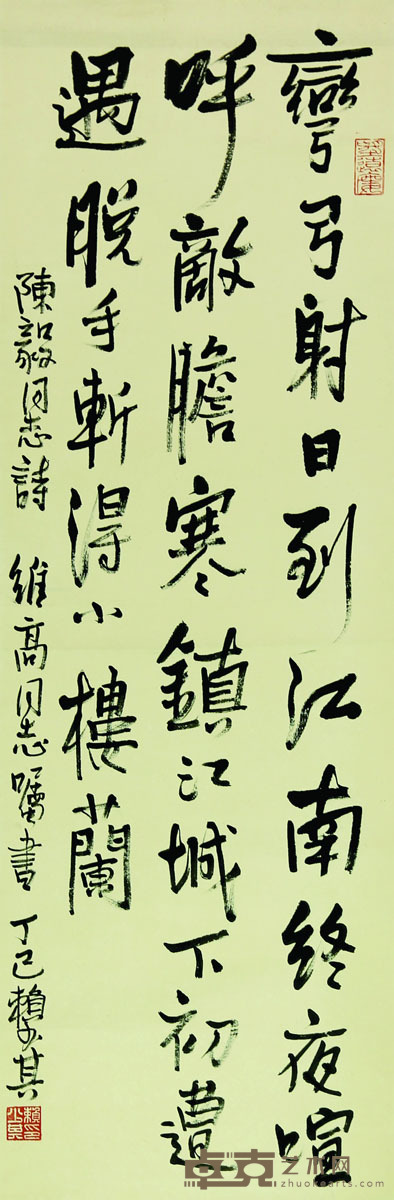 彎弓射日到江南終夜喧
呼敵膽寒鎮江城下初遭
遇脫手斬得小樓蘭
陳毅同志詩 維高同志囑書 丁巳賴少其
卓克艺术网
www.zhuokearts.com